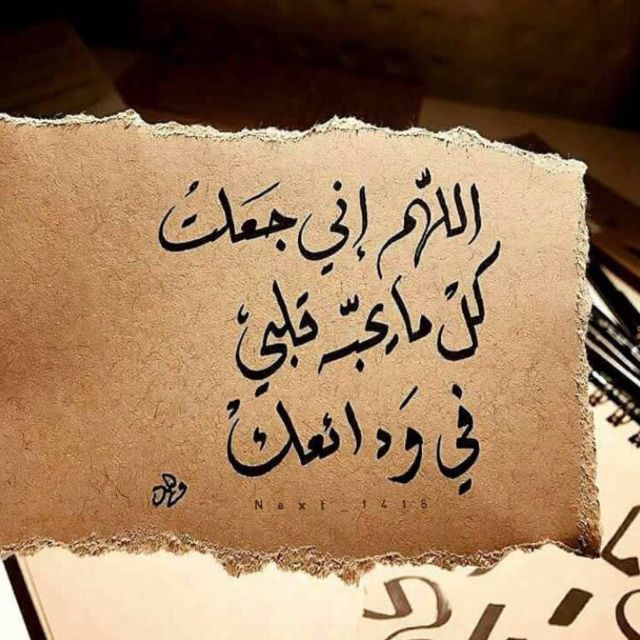 اللّهم إني جَعَلتُ
كلْ ما يحبّه قلبي
في وَدائعكْ
Next_1416